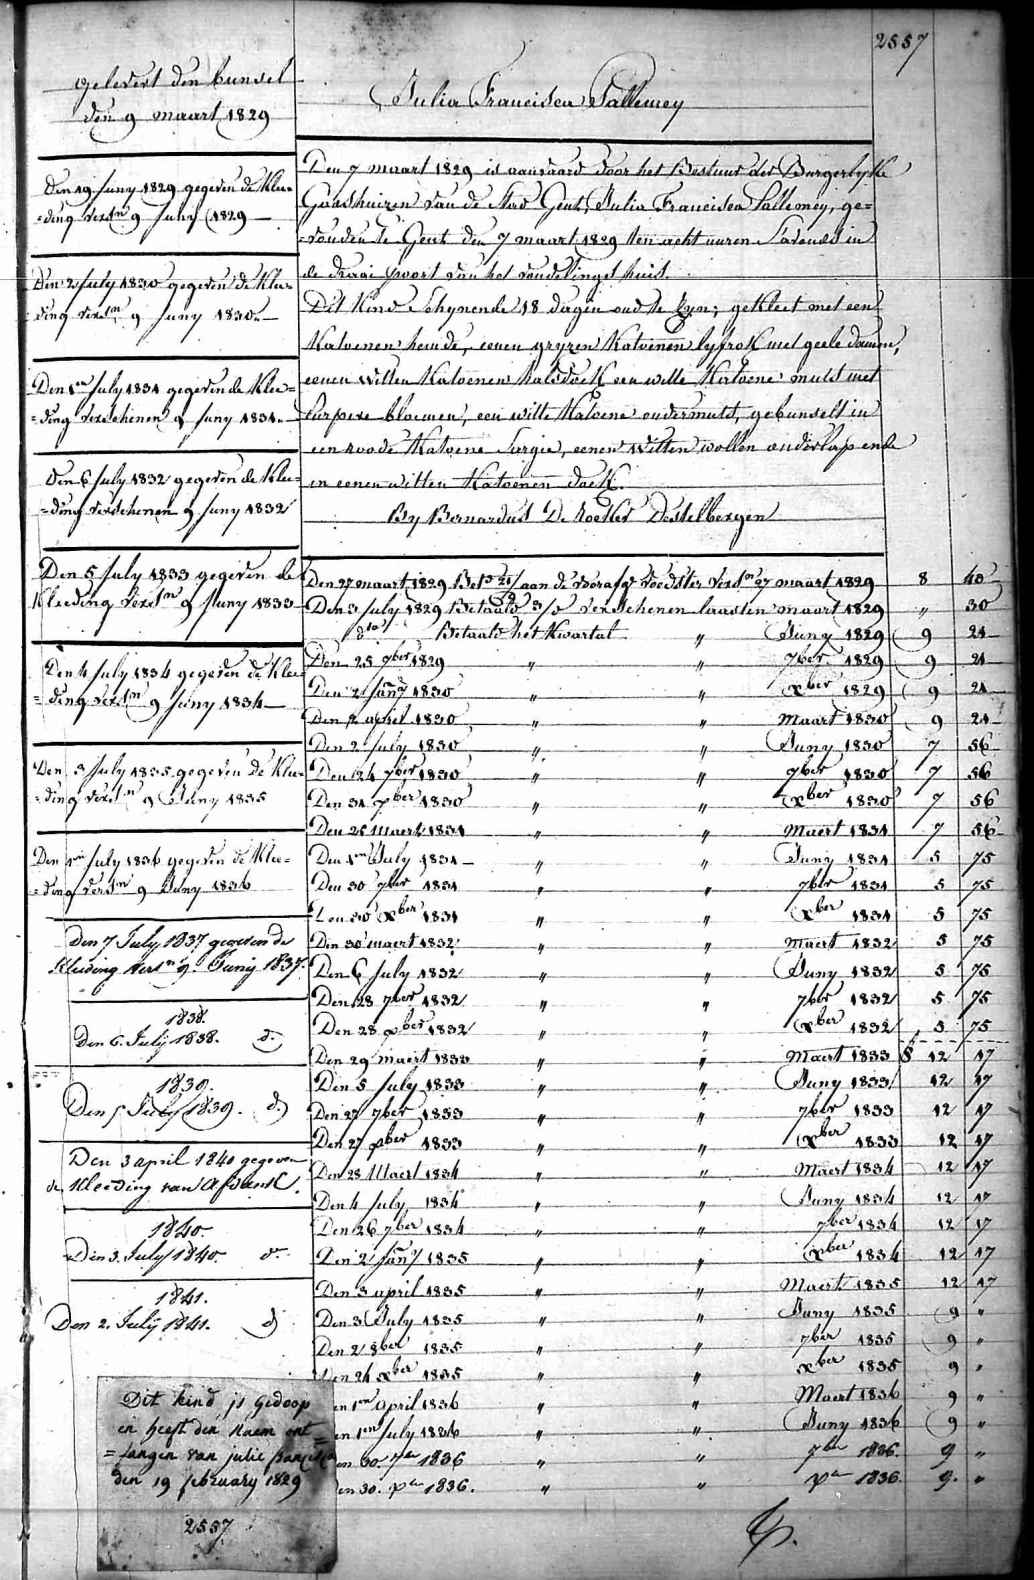 2557
gelevert den bunsel
den 9 maart 1829
Julia Francisca Pallemey
Den 7 maart 1829 is aanvaard door het Bestuur der Burgerlyke
Godshuizen van de Stad Gent, Julia Francisca Pallemey, ge=
=vonden te Gent den 7 maart 1829 ten acht uuren Savonds in
de draai poort van het vondelingshuis.
Dit Kind Schynende 18 dagen oud te Zyn; gekleet met een
Katoenen hemde, eenen gryzen Katoenen lyfrok met geele
eenen witten Katoenen halsdoek een witte Katoene muts met
purpere bloemen, een witte Katoene ondermuts, gebunselt in
een roode Katoene Sargie, eenen witten wollen onderlap ende
in eenen witten Katoenen doek.
By Bernardus De Destelbergen
Den 19 Juny 1829 gegeven de Klee=
=ding versn 9 Juny 1829
Den 2 July 1830 gegeven de Klee=
=ding versn 9 Juny 1830.
Den 1en July 1831 gegeven de Klee=
=ding verschenen 9 Juny 1831.
Den 6 July 1832 gegeven de Klee=
=ding verschenen 9 Juny 1832
Den 5 July 1833 gegeven de
Kleeding versn 9 Juny 1833
Den 4 July 1834 gegeven de Klee
=ding versn 9 Juny 1834
Den 3 July 1835 gegeven de Klee=
=ding versn 9 Juny 1835
Den 1en July 1836 gegeven de Klee=
=ding versn 9 Juny 1836
Den 7 July 1837 gegeven de
Kleeding versn 9. Junij 1837.
1838.
Den 6. Julij 1838. do
1839.
Den 5 July 1839. do
Den 3 april 1840 gegeven
de Kleeding van
1840.
Den 3. July 1840. do
1841.
Den 2. Julij 1841. do
Den 27 maart 1829 aan de voedster versn 27 maart 1829 8 40
Den 3 July 1829 Betaald verschenen laasten maart 1829 " 30
dito Betaald het Kwartal " Juny 1829 9 21
Den 25 7ber 1829 " " 7ber 1829 9 21
Den 2 Jany 1830 " " xber 1829 9 21
Den 2 april 1830 " " Maart 1830 9 21
Den 2 July 1830 " " Juny 1830 7 56
Den 24 7ber 1830 " " 7ber 1830 7 56
Den 31 xber 1830 " " xber 1830 7 56
Den 26 Maert 1831 " " Maert 1831 7 56
Den 1en July 1831 " " Juny 1831 5 75
Den 30 7ber 1831 " " 7ber 1831 5 75
Den 30 xber 1831 " " xber 1831 5 75
Den 30 maert 1832 " " Maert 1832 5 75
Den 6 July 1832 " " Juny 1832 5 75
Den 28 7ber 1832 " " 7ber 1832 5 75
Den 28 xber 1832 " " xber 1832 5 75
Den 29 maert 1833 " " Maert 1833 12 17
Den 5 July 1833 " " Juny 1833 12 17
Den 27 7ber 1833 " " 7ber 1833 12 17
Den 27 xber 1833 " " xber 1833 12 17
Den 28 Maert 1834 " " Maert 1834 12 17
Den 4 July 1834 " " Juny 1834 12 17
Den 26 7ber 1834 " " 7ber 1834 12 17
Den 2 Jany 1835 " " xber 1834 12 17
Den 3 april 1835 " " Maert 1835 12 17
Den 3 July 1835 " " Juny 1835 9 "
Den 2 8ber 1835 " " 7ber 1835 9 "
Den 24 xber 1835 " " xber 1835 9 "
en 1en april 1836 " " Maert 1836 9 "
en 1en July 1836 " " Juny 1836 9 "
en 30. 7ber 1836 " " 7ber 1836. 9 "
en 30. xber 1836. " " xber 1836. 9. "
Dit kind is Gedoop
en heeft den Naem ont=
=fangen van julie francisca
den 19 february 1829
2557